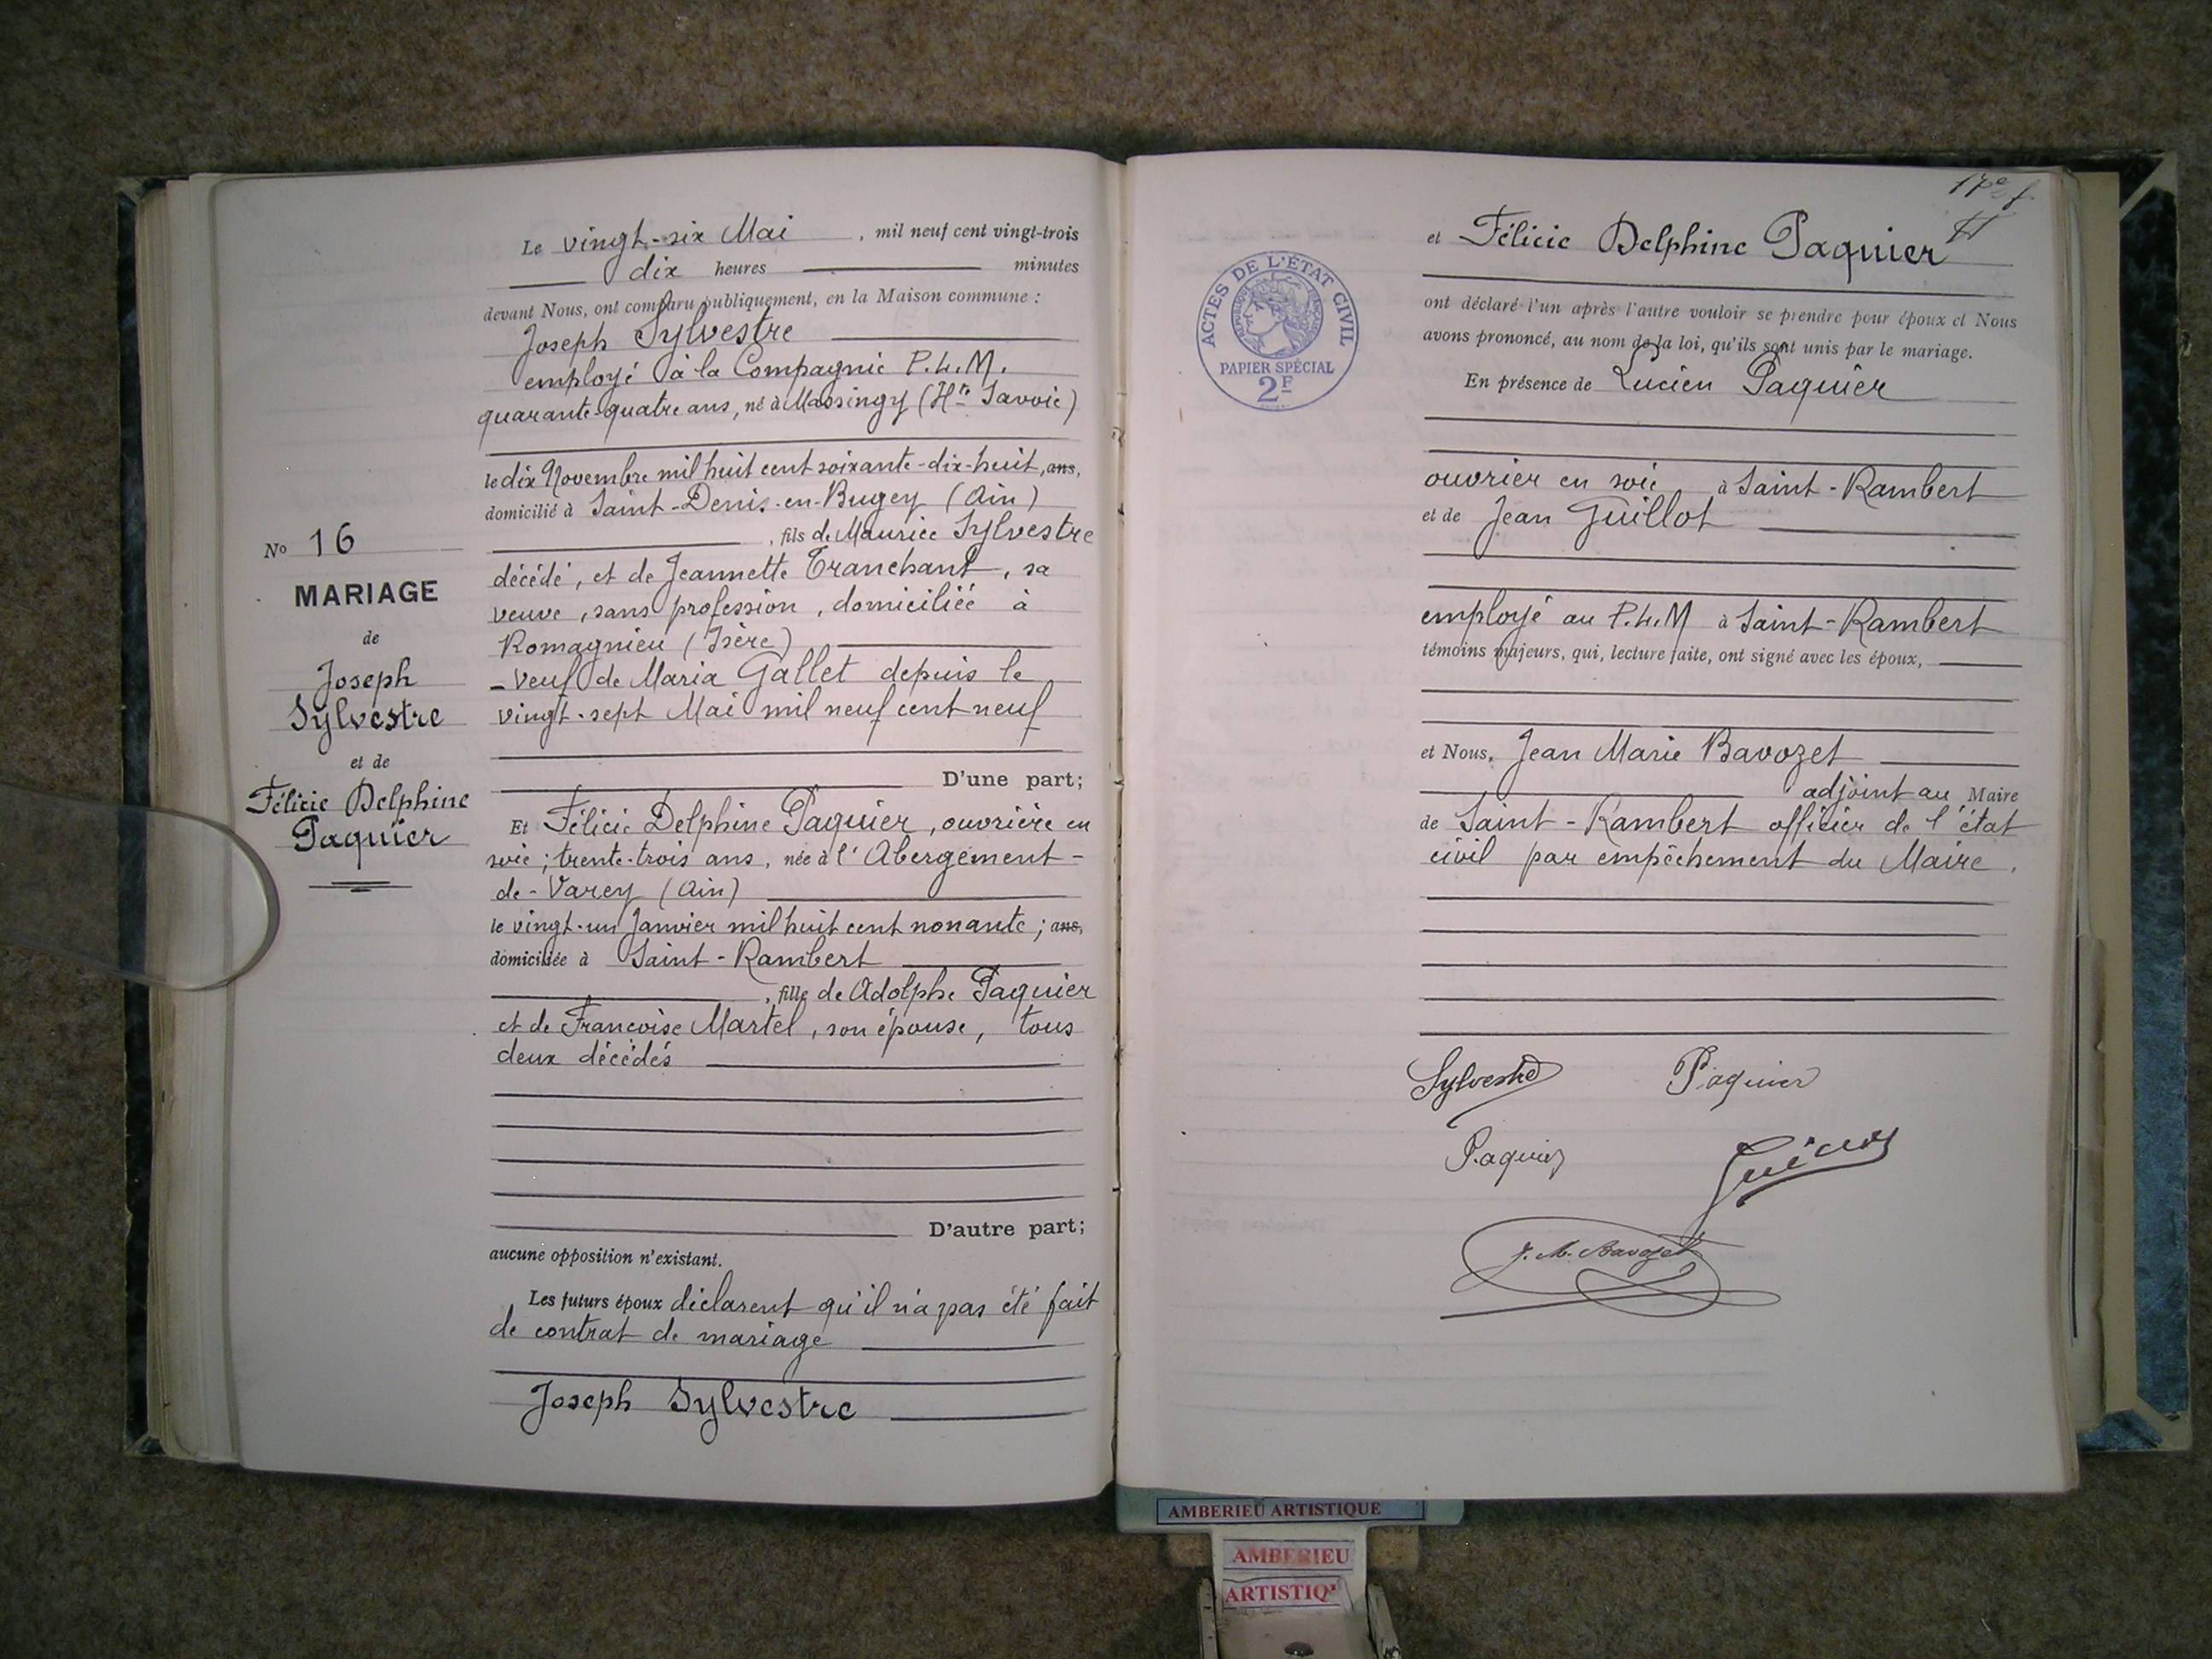 No 16
MARIAGE
de
Joseph
Sylvestre
et de
Félicie Delphine
Paquier
Le vingt-six Mai, mil neuf cent vingt-trois
dix heures minutes
devant Nous, ont comparu publiquement, en la Maison commune :
Joseph Sylvestre
employé à la Compagnie P.L.M.
quarante-quatre ans, né à Massingy (Hte Savoie)
le dix Novembre mil huit cent soixante-dix-huit, ans,
domicilié à Saint-Denis-en-Bugey (Ain)
, fils de Maurice Sylvestre
décédé, et de Jeannette Tranchant, sa
veuve, sans profession, domiciliée à
Romagnieu (Isère)
- Veuf de Maria Gallet depuis le
vingt-sept Mai mil neuf cent neuf
D'une part;
Et Félicie Delphine Paquier, ouvrière en
soie; trente-trois ans, née à l'Abergement-
de-Varey (Ain)
le vingt-un Janvier mil huit cent nonante; ans,
domiciliée à Saint-Rambert
, fille de Adolphe Paquier
et de Francoise Martel, son épouse, tous
deux décédés
D'autre part;
aucune opposition n'existant.
Les futurs époux déclarent qu'il n'a pas été fait
de contrat de mariage
Joseph Sylvestre
17e f
et Félicie Delphine Paquier
ont déclaré l'un après l'autre vouloir se prendre pour époux et Nous
avons prononcé, au nom de la loi, qu'ils sont unis par le mariage.
En présence de Lucien Paquier
ouvrier en soie à Saint-Rambert
et de Jean Guillot
employé au P.L.M à Saint-Rambert
témoins majeurs, qui, lecture faite, ont signé avec les époux,
et Nous, Jean Marie Bavozet
adjoint au Maire
de Saint-Rambert officier de l'état
civil par empêchement du Maire.
Sylvestre Paquier
Paquier
J. M. Bavozet
ACTES DE L'ÉTAT CIVIL
PAPIER SPÉCIAL
2F
AMBERIEU ARTISTIQUE
AMBERIEU
ARTISTIQ